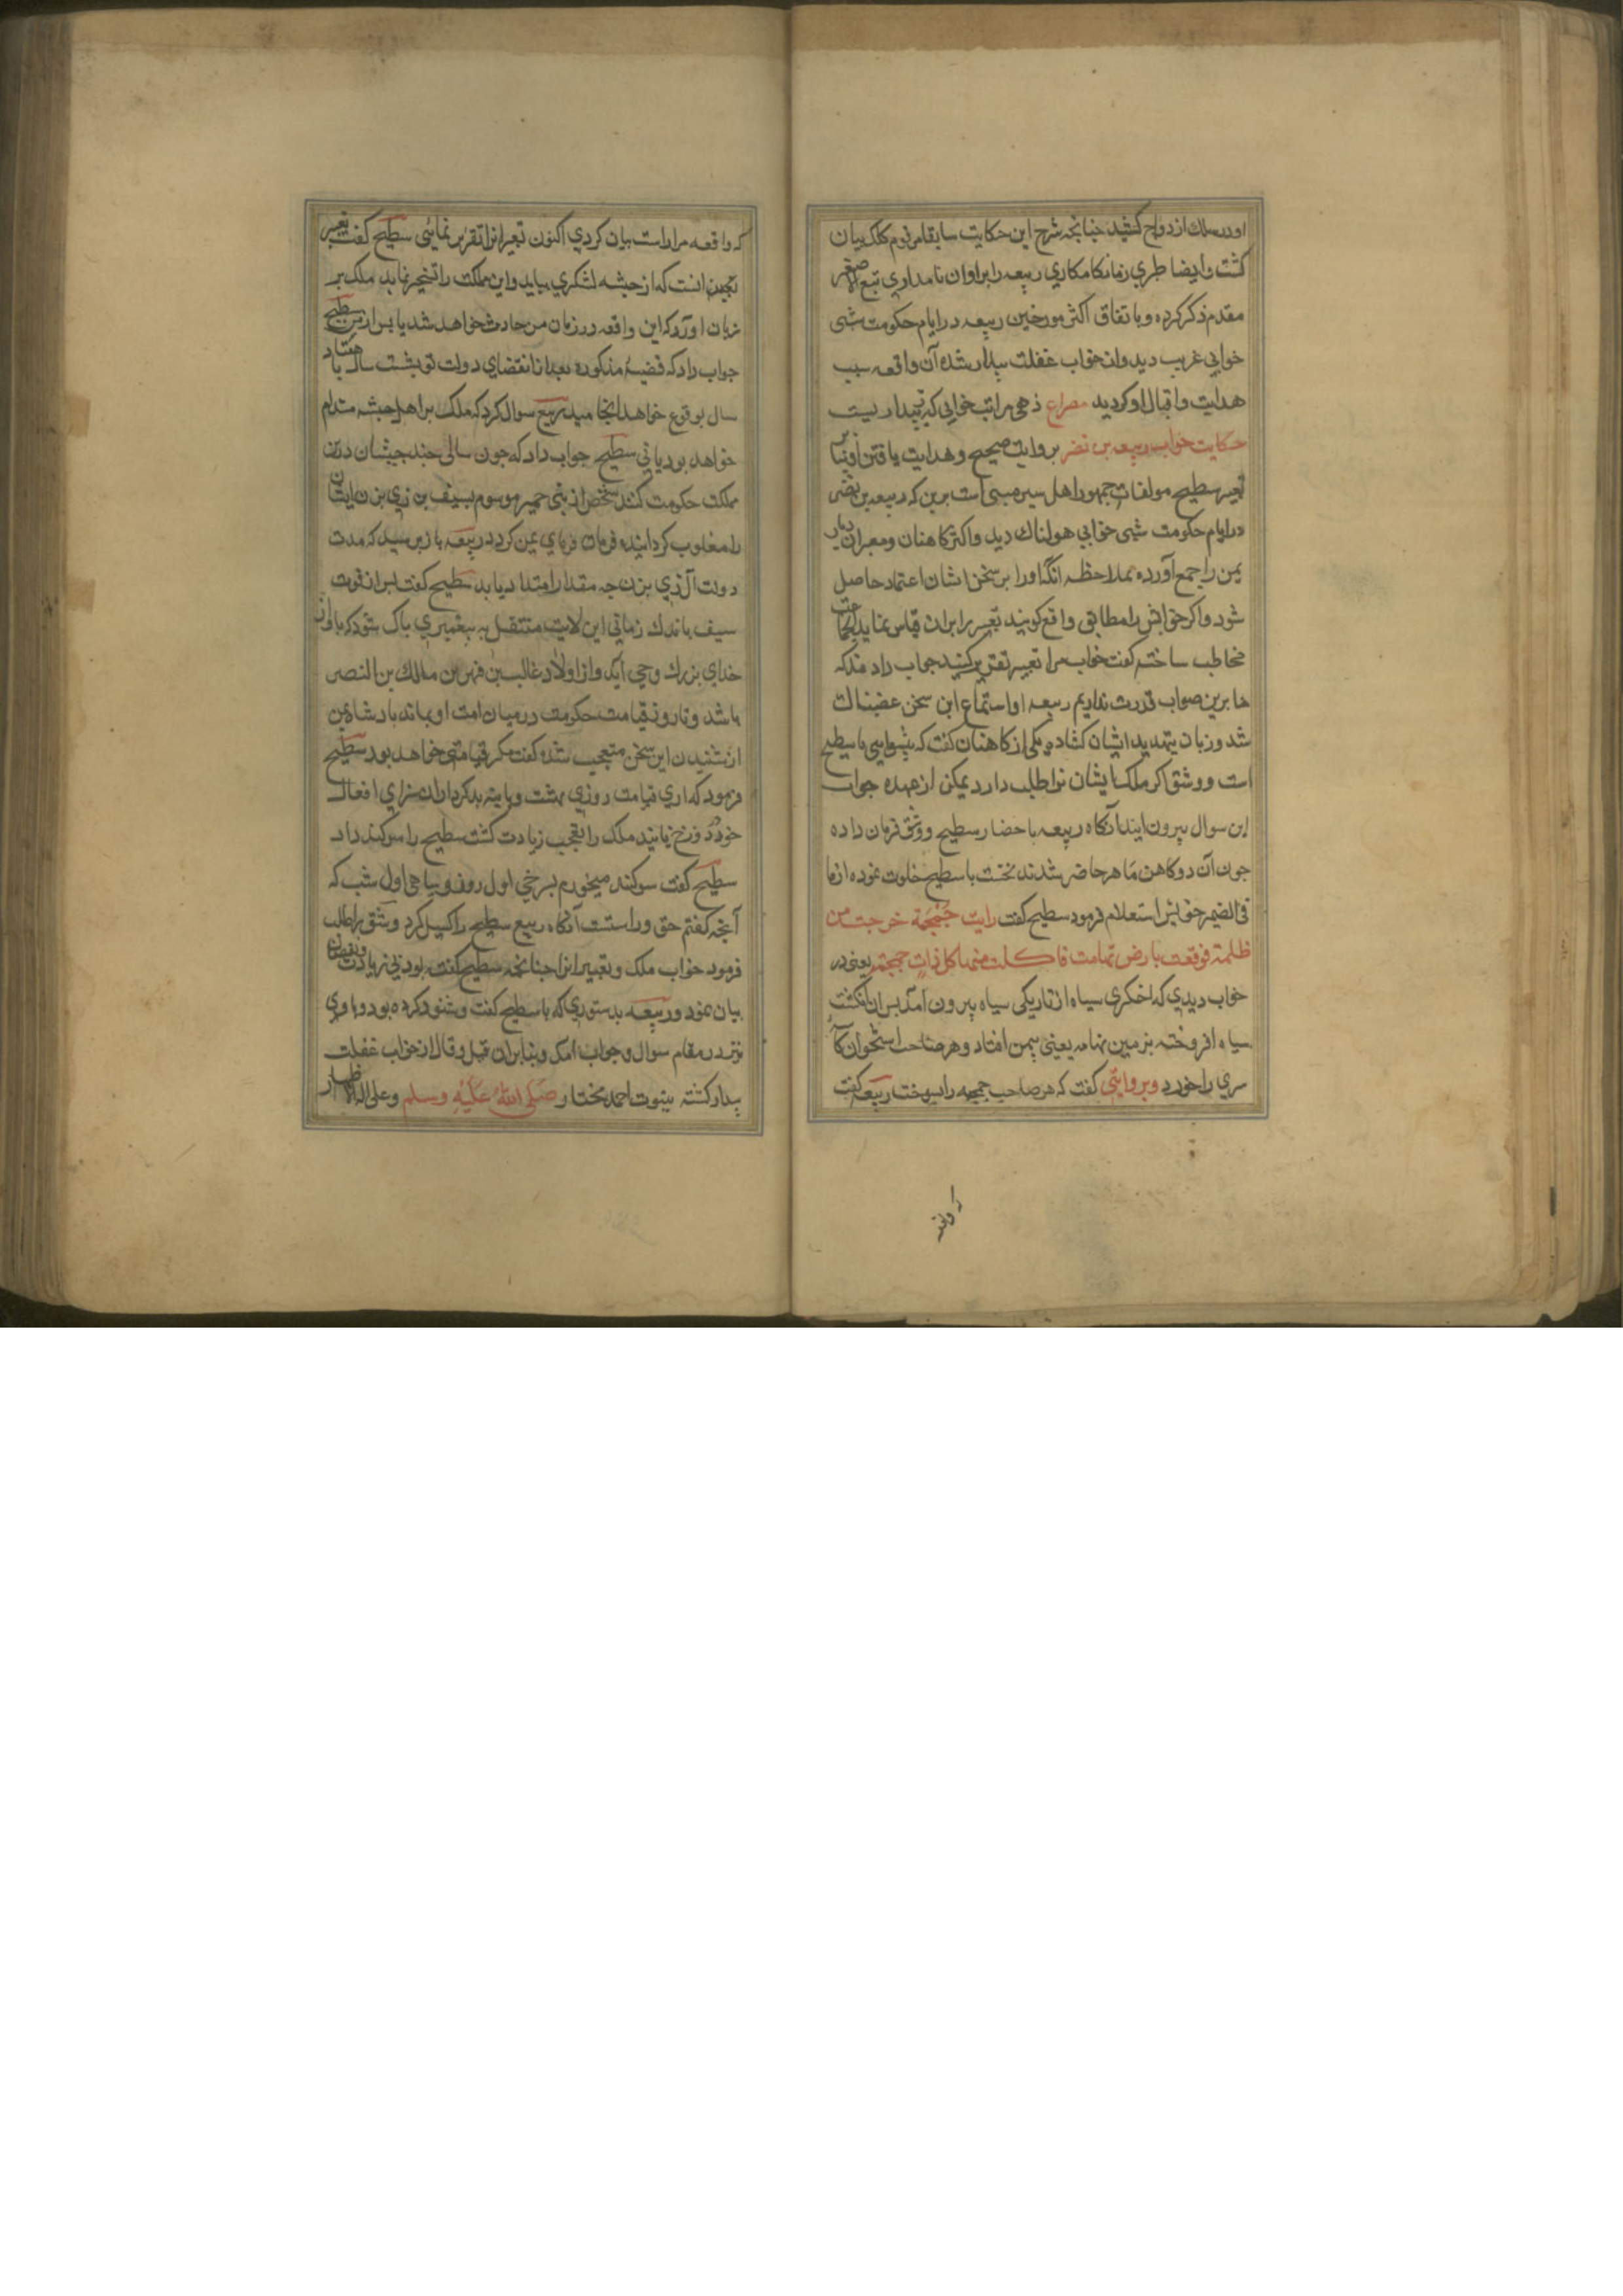 او در سلك ازدواج كشید چنانچه شرح این حكایت سابقا مرقوم كلك بیان
كشت و ایضا طبري زمان كامكاري ربیعه را بر اوان نامداري تبع الاصغر
مقدم ذكر كرده و باتفاق اكثر مورخین ربیعه در ایام حكومت شبی
خوابی غریب دید و از خواب غفلت بیدار شده آن واقعه سبب
هدایت و اقبال او كردید مصراع زهی مراتب خوابی كه به ز بیداریست
حكایت خواب ربیعه بن نضر بروایت صحیح و هدایت یافتن او بنابر
تعبیر سطیح مولفات جمهور اهل سیر مبنی است برین كه ربیعه بن نضر
در ایام حكومت شبی خوابی هولناك دید و اكثر كاهنان و معبران دیار
یمن را جمع آورده بملاحظه آنكه او را بر سخن ایشان اعتماد حاصل
شود و اكر خوابش را مطابق واقع كویند تعبیر را بران قیاس نماید
مخاطب ساخته كفت خواب مرا تعبیر تقریر كنید جواب دادند كه
ما برین صواب قدرت نداریم ربیعه از استماع این سخن غضبناك
شد و زبان بتهدید ایشان كشاد یكی از كاهنان كفت كه پیشوایی ما سطیح
است و وشق اكر ملك ایشان را طلب دارد یمكن از عهده جواب
این سوال بیرون آیند آنكاه ربیعه باحضار سطیح و وشق فرمان داده
چون آن دو كاهن ماهر حاضر شدند نخست با سطیح خلوت نموده از ما
فی الضمیر خویش استعلام فرمود سطیح كفت رایت جمجمة خرجت من
ظلمة فوقعت بارض تهامت فاكلت منها كل ذات جمجمة یعنی در
خواب دیدي كه اخكری سیاه از تاریكی سیاه بیرون آمد پس ان انكشت
سیاه افروخته بزمین تهامه یعنی بیمن افتاد و هر صاحب استخوان كاسه
سري را خورد و بروایتی كفت كه هر صاحب جمجمه را بسوخت ربیعه كفت
كه واقعه مرا راست بیان كردي اكنون تعبیر انرا تقریر نمایی سطیح كفت تعبیر
چنین است كه از حبشه لشكري بیاید و این مملكت را تسخیر نماید ملك بر
زبان اورد كه این واقعه در زمان من حادث خواهد شد یا پس از من سطیح
جواب داد كه قضیهٔ مذكوره بعد از انقضای دولت تو بشست سال یا هفتاد
سال بوقوع خواهد انجامید ربیع سوال كرد كه ملك بر اهل حبشه مدام
خواهد بود یا نی سطیح جواب داد كه چون سالی چند حبشان درین
مملكت حكومت كنند شخصی از بنی حمیر موسوم بسیف بن ذي یزن ایشان
را مغلوب كردانیده فرمان فرمای یمن كردد ربیعه باز پرسید كه مدت
دولت آل ذي یزن چه مقدار امتداد یابد سطیح كفت پس از فوت
سیف باندك زمانی این ولایت منتقل به پیغمبري پاك شود كه باو از
خداي بزرك وحي آید و از اولاد غالب بن فهر بن مالك بن النضر
باشد و تا روز قیامت حكومت در میان امت او بماند پادشاه یمن
از شنیدن این سخن متعجب شده كفت مكر قیامتی خواهد بود سطیح
فرمود كه اري قیامت روزي هست و بدكرداران سزاي افعال
خود در دوزخ یابند ملك را تعجب زیادت كشت سطیح را سوكند داد
سطیح كفت سوكند میخورم بسرخي اول روز و سیاهی اول شب كه
آنچه كفتم حق و راستست آنكاه ربیع سطیح را كسیل كرد و شق را طلب
فرمود خواب ملك و تعبیر انرا چنانچه سطیح كفته بود بی زیادت و نقصان
بیان نمود و ربیعه بدستوري كه با سطیح كفت و شنود كرده بود با وی
نیز در مقام سوال و جواب آمد و بنابران قیل و قال از خواب غفلت
بیدار كشته بنبوت احمد مختار صلی الله علیه وسلم و علی اله الاطهار